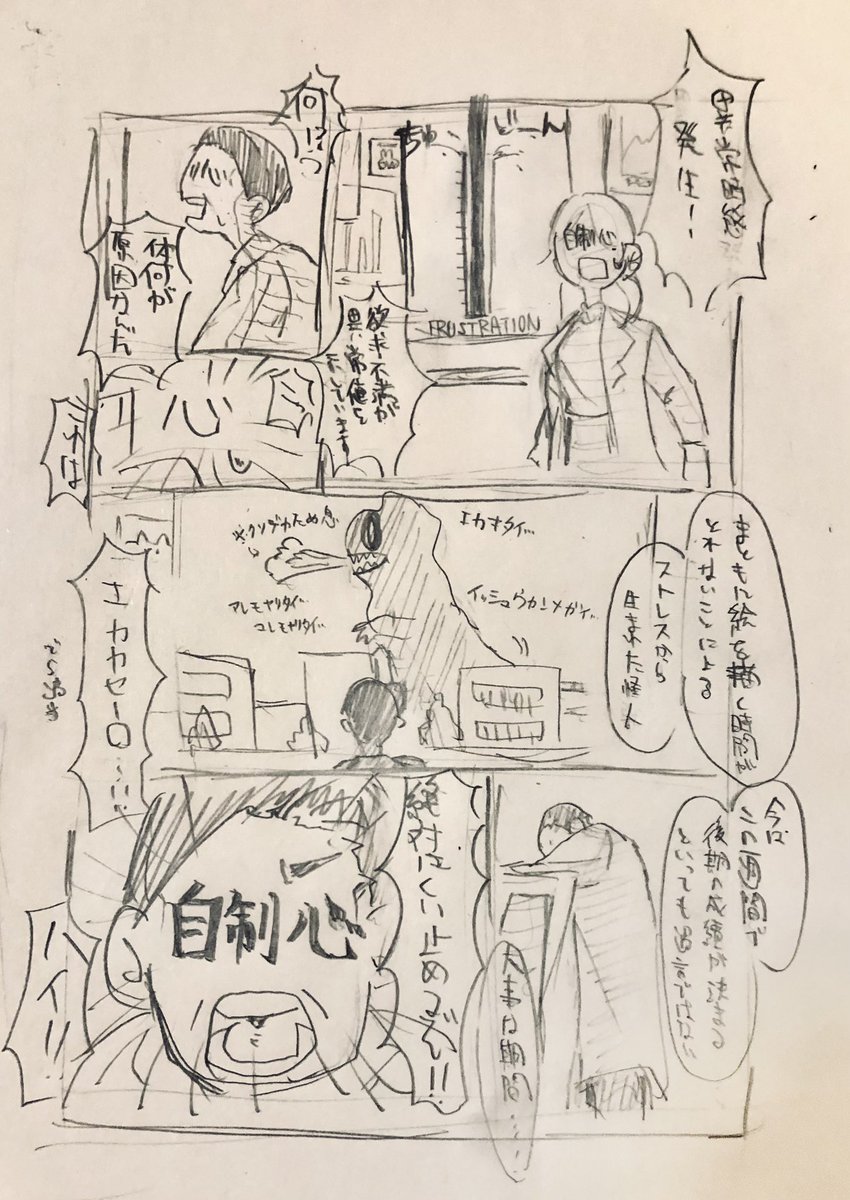 異常事態
発生!!
自制心
びーん
ちゅ、
FRUSTRATION
欲求不満が
異常値を
だしています
何!?
一体何が
原因なんだ
心
これは
まともに絵を描く時間が
とれないことによる
ストレスから
生まれた怪人
エカキタイ…
イッシュウカンハナガイ…
※クソデカため息
アレモヤリタイ…
コレモヤリタイ…
エカカセーロ…!!
今は
この1週間で
後期の成績が決まる
といっても過言でない
大事な期間…
絶対にくい止めるぞ!!
自制心
ハイ!!